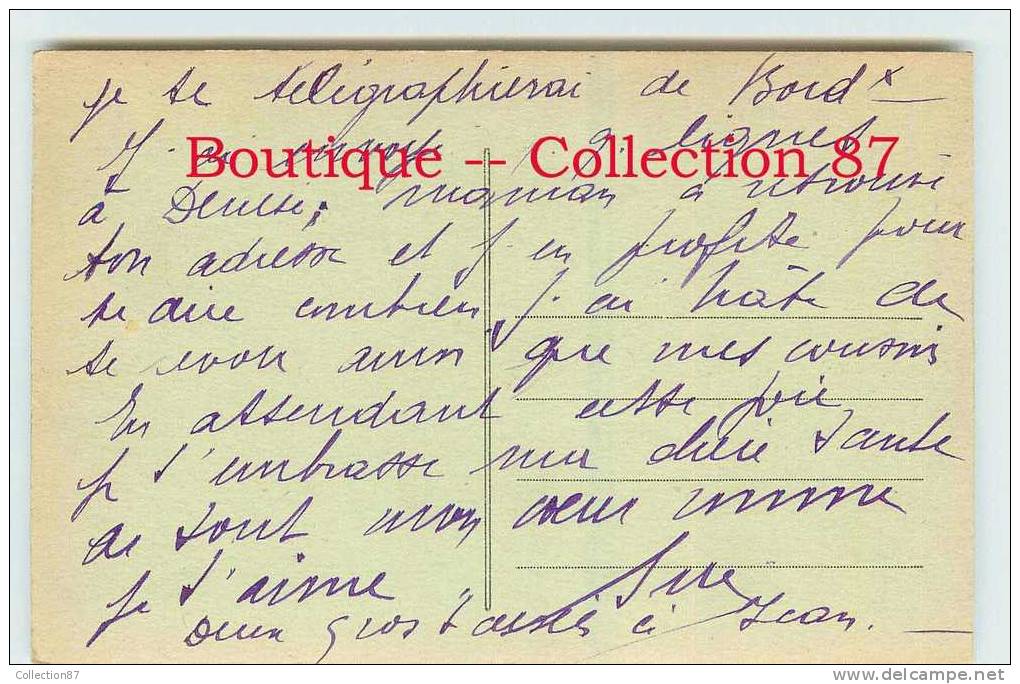 je te télégraphierai de Bordx
J'ai envoyé q. lignes
Boutique -- Collection 87
à Denise, maman a retrouvé
ton adresse et j'en profite pour
te dire combien j'ai hâte de
te revoir ainsi que mes cousins
En attendant cette joie
je t'embrasse ma chère Tante
de tout mon cœur comme
je t'aime
Deux gros baisers à Jean.
Collection87
delcampe.net